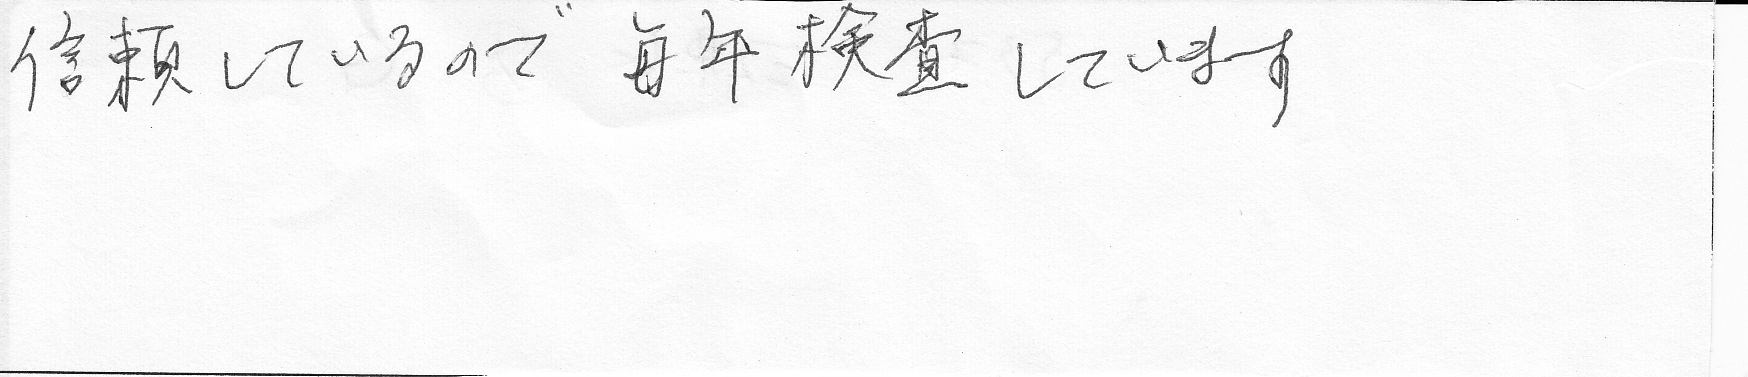 信頼しているので毎年検査しています